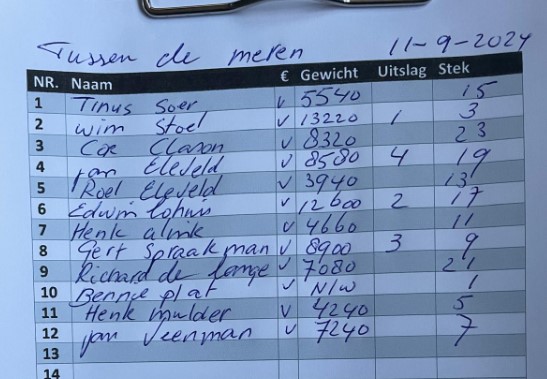 Tussen de meren 11-9-2024
NR. Naam € Gewicht Uitslag Stek
1 Tinus Soer v 5540 15
2 Wim Stoel v 13220 1 3
3 Cor Clason v 8320 23
4 Jan Eleveld v 8580 4 19
5 Roel Eleveld v 3940 13
6 Edwin v 12600 2 17
7 Henk alink v 4660 11
8 Gert Spraakman v 8900 3 9
9 Richard de Lange v 7080 21
10 Bennie plat v N/W 1
11 Henk mulder v 4240 5
12 Jan Veenman v 7240 7
13
14